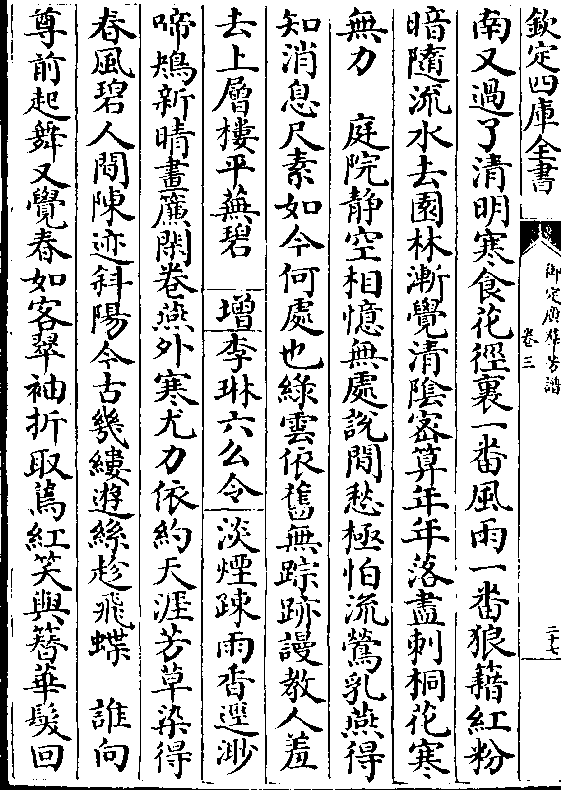 欽定四庫全書
御定廣群芳譜
卷三
二十七
南又過了清明寒食花徑裏一畨風雨一畨狼籍紅粉
暗隨流水去園林漸覺清陰宻算年年落盡刺桐花寒
無力　庭院静空相憶無處說閒愁極怕流鶯乳燕得
知消息尺素如今何處也綠雲依舊無踪跡謾教人羞
去上層樓平蕪碧　增李琳六么令淡煙疎雨香逕渺
啼鴂新晴畫簾閑卷燕外寒尤力依約天涯芳草染得
春風碧人間陳迹斜陽今古幾縷遊絲趁飛蝶　誰向
尊前起舞又覺春如客翠袖折取嫣紅笑與簪華髮回